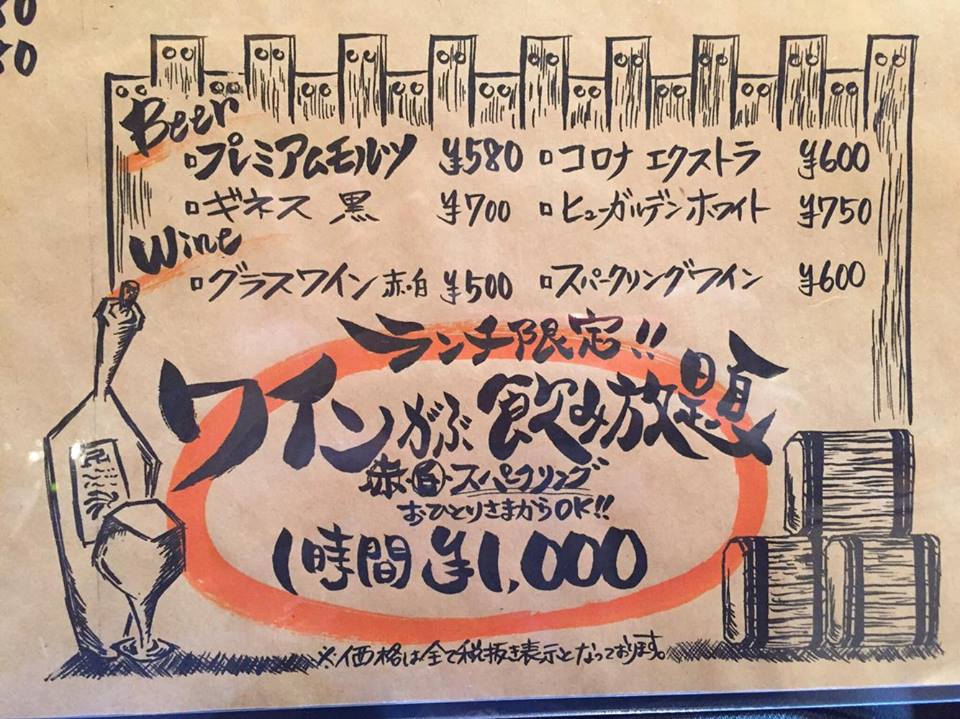 Beer
プレミアムモルツ ¥580 コロナ エクストラ ¥600
ギネス 黒 ¥700 ヒューガルデンホワイト ¥750
Wine
グラスワイン 赤・白 ¥500 スパークリングワイン ¥600
ランチ限定!!
ワインがぶ飲み放題
赤・白・スパークリング
おひとりさまからOK!!
1時間 ¥1,000
※価格は全て税抜き表示となっております。